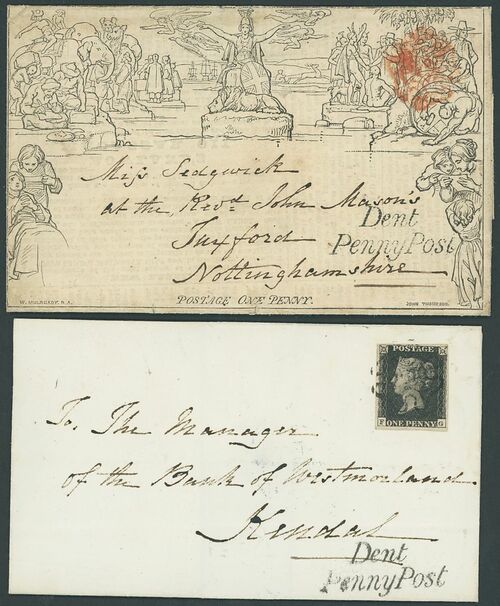 Miss Sedgwick
at the Revd John Mason's
Tuxford
Nottinghamshire
Dent
Penny Post
POSTAGE ONE PENNY.
W. MULREADY. R.A.
JOHN THOMPSON.
POSTAGE
ONE PENNY
F G
To, The Manager
of the Bank of Westmorland
Kendal
Dent
Penny Post